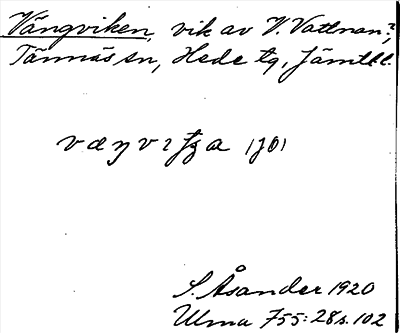 Vängviken, vik av V. Vattnan?,
Tännäs sn, Hede tg, Jämtl l.
S. Åsander 1920
Ulma 755:28 s. 102